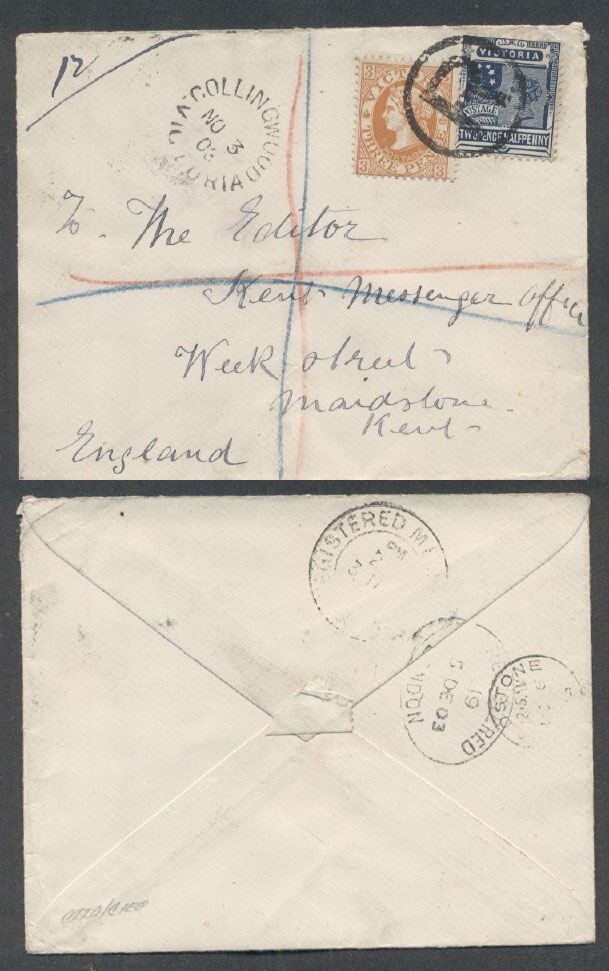 12
COLLINGWOOD
NO 3
03
VICTORIA
3 VICTORIA 3
POSTAGE
3 THREE PENCE 3
VICTORIA
POSTAGE
TWO PENCE HALFPENNY
To. The Editor
Kent Messenger office
Week street
Maidstone
Kent
England
REGISTERED M
PM
REGISTERED
19
5 DE 03
LONDON
STONE